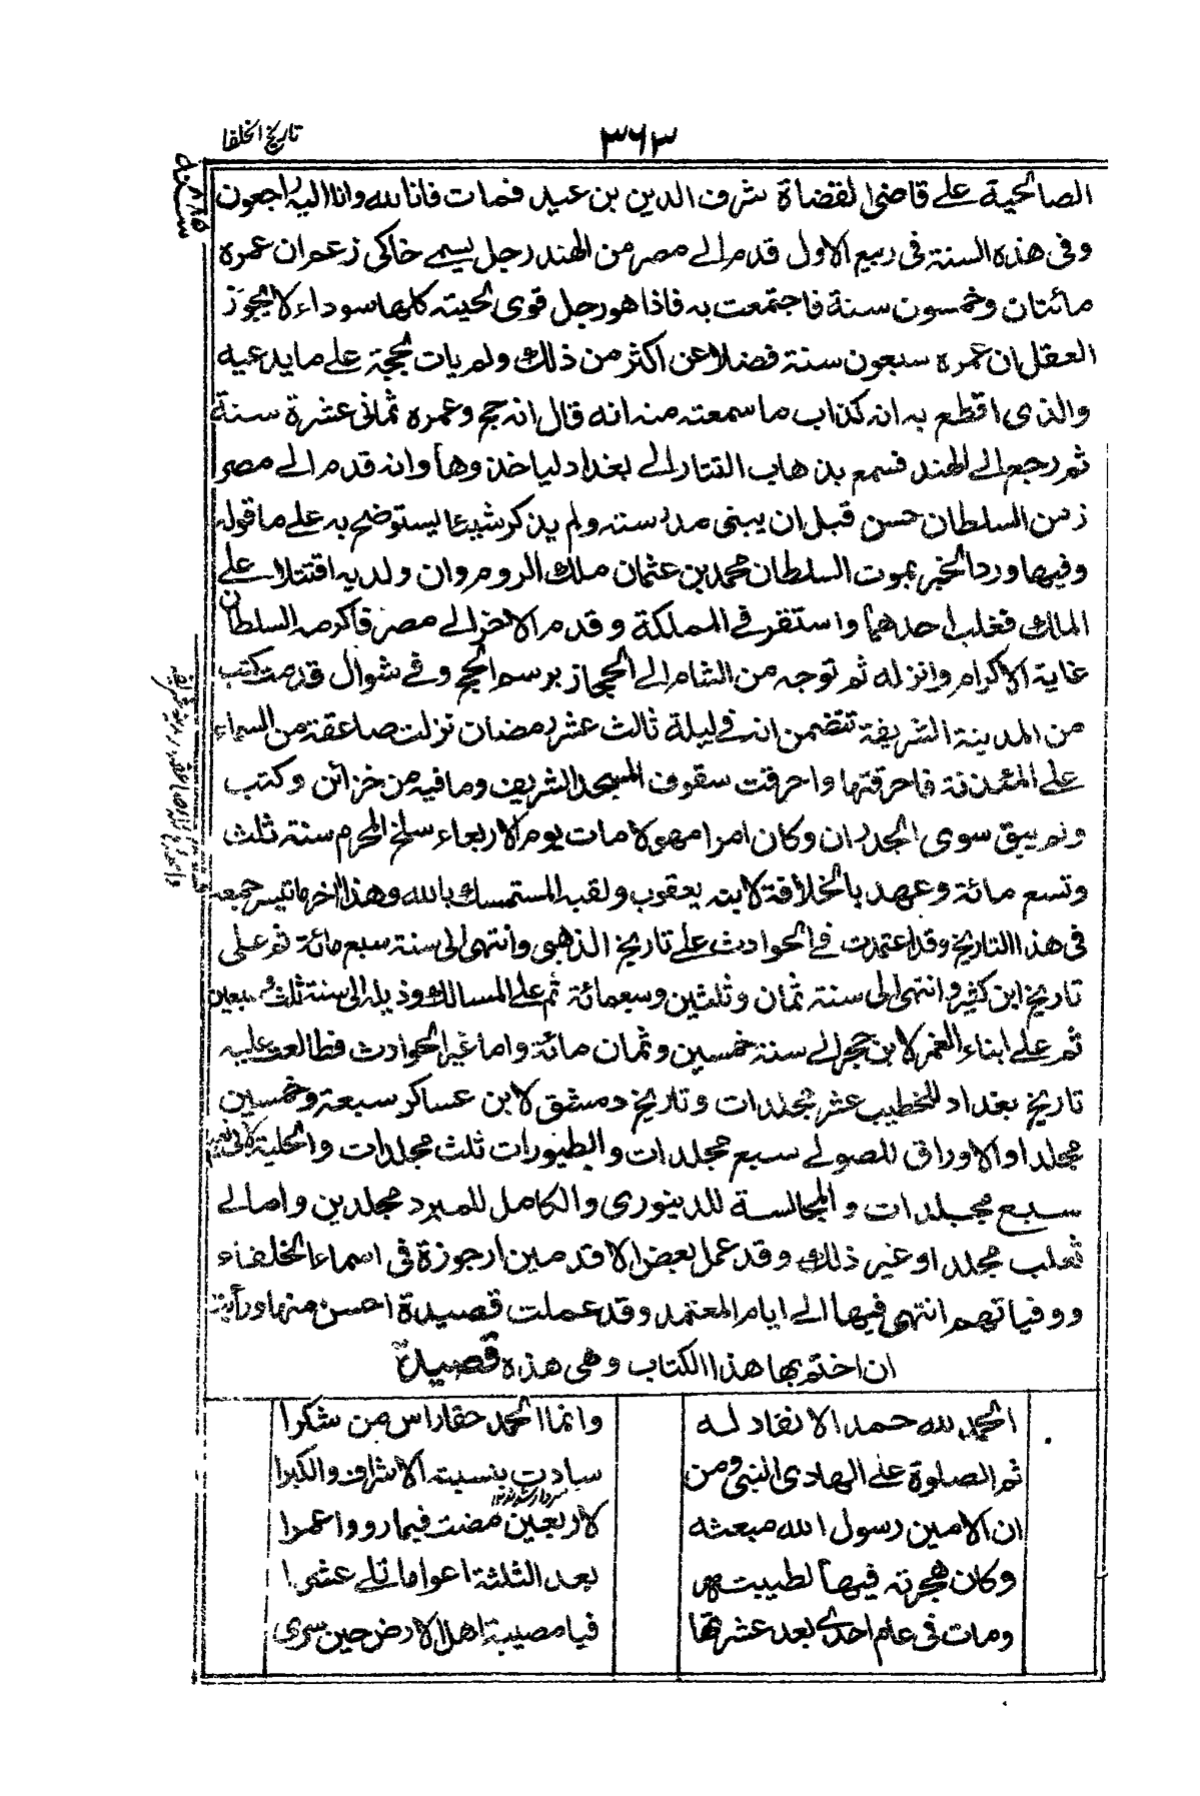 تاريخ الخلفا
٣٦٣
الصالحية على قاضى القضاة شرف الدين بن عيد فمات فانا لله وانا اليه راجعون
وفى هذه السنة فى ربيع الاول قدم الى مصر من الهند رجل يسمى خاكى زعم ان عمره
مائتان وخمسون سنة فاجتمعت به فاذا هو رجل قوى لحيته كلها سوداء لا يجوز
العقل ان عمره سبعون سنة فضلا عن اكثر من ذلك ولم يات بحجة على ما يدعيه
والذى اقطع به انه كذاب مما سمعته منه انه قال انه حج وعمره ثمانى عشرة سنة
ثم رجع الى الهند فسمع بذهاب التتار الى بغداد لياخذوها وانه قدم الى مصر
زمن السلطان حسن قبل ان يبنى مدرسته ولم يذكر شيئا يستوضح به على ما قوله
وفيها ورد الخبر بموت السلطان محمد بن عثمان ملك الروم وان ولديه اقتتلا على
الملك فغلب احدهما واستقر فى المملكة وقدم الاخر الى مصر فاكرمه السلطان
غاية الاكرام وانزله ثم توجه من الشام الى الحجاز برسم الحج وفى شوال قدمت كتب
من المدينة الشريفة تتضمن انه فى ليلة ثالث عشر رمضان نزلت صاعقة من السماء
على المئذنة فاحرقتها واحرقت سقوف المسجد الشريف وما فيه من خزائن وكتب
ولم يبق سوى الجدران وكان امرا مهولا مات يوم الاربعاء سلخ المحرم سنة ثلث
وتسع مائة وعهد بالخلافة لابنه يعقوب ولقبه المستمسك بالله وهذا اخر ما تيسر جمعه
فى هذا التاريخ وقد اعتمدت فى الحوادث على تاريخ الذهبى وانتهى الى سنة سبع مائة ثم على
تاريخ ابن كثير وانتهى الى سنة ثمان وثلثين وسبعمائة ثم على المسالك وذيله الى سنة ثلث و سبعين
ثم على ابناء الغمر لابن حجر الى سنة خمسين وثمان مائة واما غير الحوادث فطالعت عليه
تاريخ بغداد للخطيب عشر مجلدات وتاريخ دمشق لابن عساكر سبعة وخمسين
مجلدا والاوراق للصولى سبع مجلدات والطيورات ثلث مجلدات والحلية لابى نعيم
سبع مجلدات والمجالسة للدينورى والكامل للمبرد مجلدين وامالى
ثعلب مجلدا وغير ذلك وقد عمل بعض الاقدمين ارجوزة فى اسماء الخلفاء
ووفياتهم انتهى فيها الى ايام المعتمد وقد عملت قصيدة احسن منها ورأيت
ان اختم بها هذا الكتاب وهى هذه قصيدة
الحمد لله حمدا لا نفاد له وانما الحمد حقا راس من شكرا
ثم الصلوة على الهادى النبى ومن سادت بنسبته الاشراف والكبرا
ان الامين رسول الله مبعثه لاربعين مضت فيما رووا عمرا
وكان هجرته فيها لطيبته بعد الثلثة اعواما تلى عشرا
ومات فى عام احدى بعد عشرتها فيا مصيبة اهل الارض حين سرى